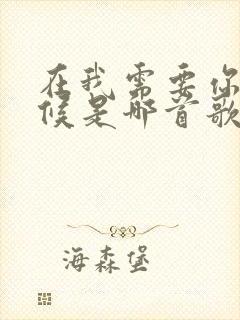 在我需要你
候是哪首歌
海森堡